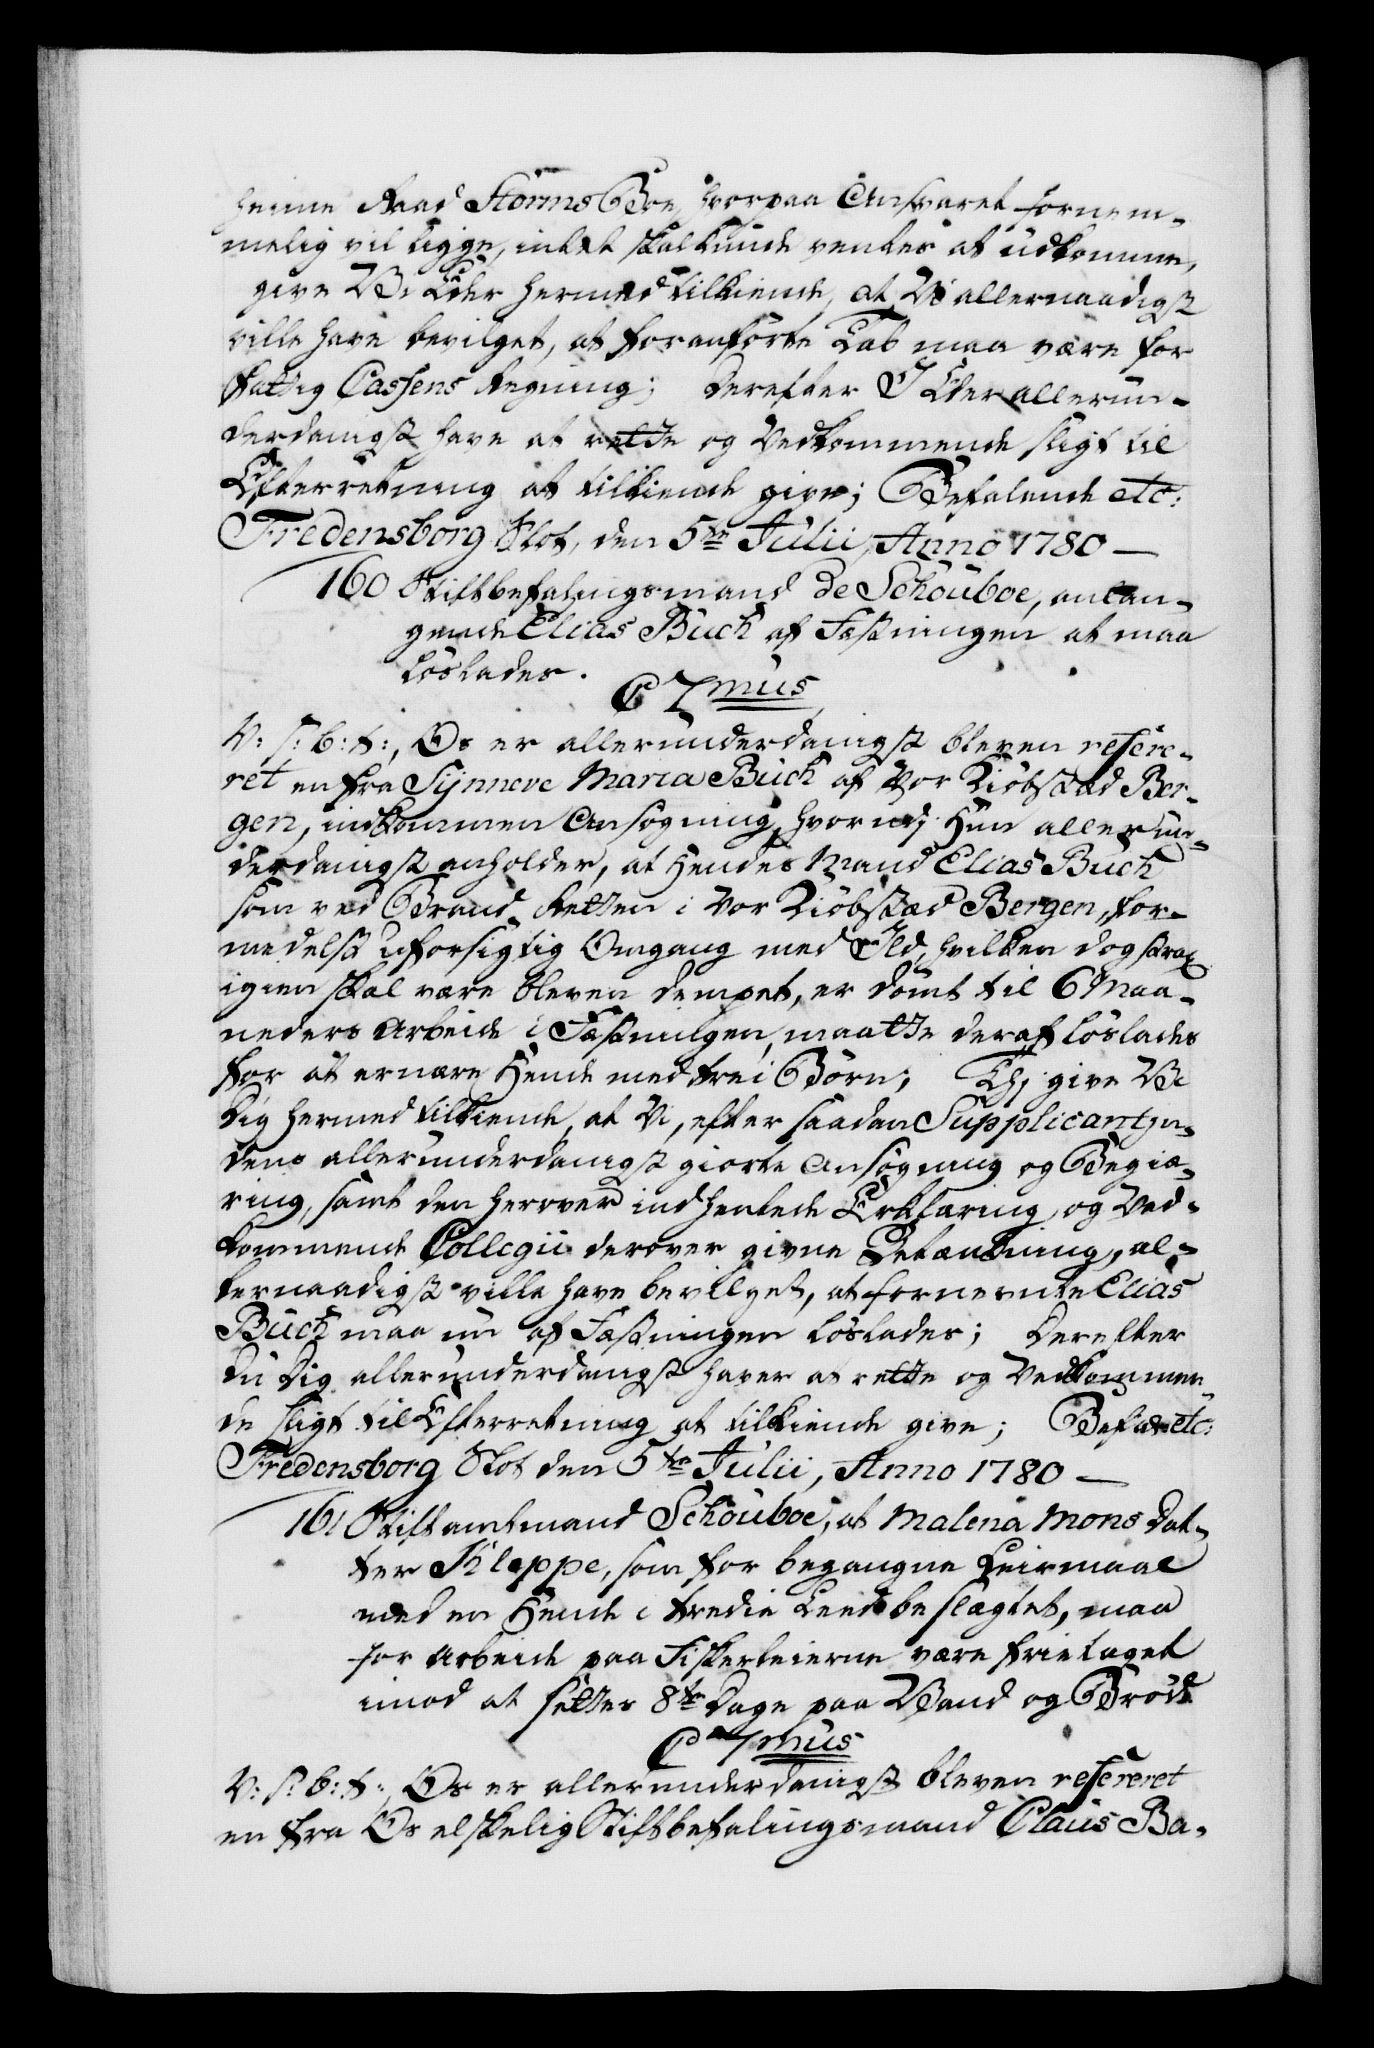 heime Raad Storms Boe, hvorpaa Ansvaret fornem-
melig vil ligge, intet skal kunde ventes at udkomme,
give Vi Eder hermed tilkiende, at Vi allernaadigst
ville have bevilget, at foranførte Tab maa være for
Fattig Cassens Regning; Derefter I Eder allerun-
derdanigst have at rette og Vedkommende sligt til
Efterretning at tilkiende give; Befalende etc:
Fredensborg Slot, den 5te Julii, Anno 1780 —
160 Stiftbefalingsmand de Schouboe, anlan-
gende Elias Buch af Fæstningen at maa
løslades.
C 7mus
V: s: b: t:, Os er allerunderdanigst bleven refere-
ret en fra Synneve Maria Buch af Vor Kiøbstæd Ber-
gen, indkommen Ansøgning, hvorudj Hun allerun-
derdanigst anholder, at Hendes Mand Elias Buch
som ved Brand-Retten i Vor Kiøbstæd Bergen, for-
medelst uforsigtig Omgang med Ild, hvilken dog strax
igien skal være bleven dempet, er dømt til 6 Maa-
neders Arbeide i Fæstningen, maatte deraf løslades
for at ernære Hende med trei Børn; Thi give Vi
Dig hermed tilkiende, at Vi, efter saadan Supplicantin-
dens allerunderdanigst giorte Ansøgning og Begiæ-
ring, samt den herover indhentede Erklæring, og Ved-
kommende Collegii derover givne Betænkning, al-
lernaadigst ville have bevilget, at fornevnte Elias
Buch maa nu af Fæstningen løslades; Derefter
Du Dig allerunderdanigst haver at rette og Vedkommen-
de sligt til Efterretning at tilkiende give; Befal: etc:
Fredensborg Slot den 5te Julii, Anno 1780 —
161 Stiftamtmand Schouboe, at Malena Mons Dat-
ter Kleppe, som for begangne Leiermaal
med en Hende i tredie Leed beslægtet, maa
for Arbeide paa Fiskerleierne være fritaget
imod at sættes 8te Dage paa Vand og Brød
C 7mus
V: s: b: t:, Os er allerunderdanigst bleven refereret
en fra Os elskelig Stiftbefalingsmand Claus Ba-